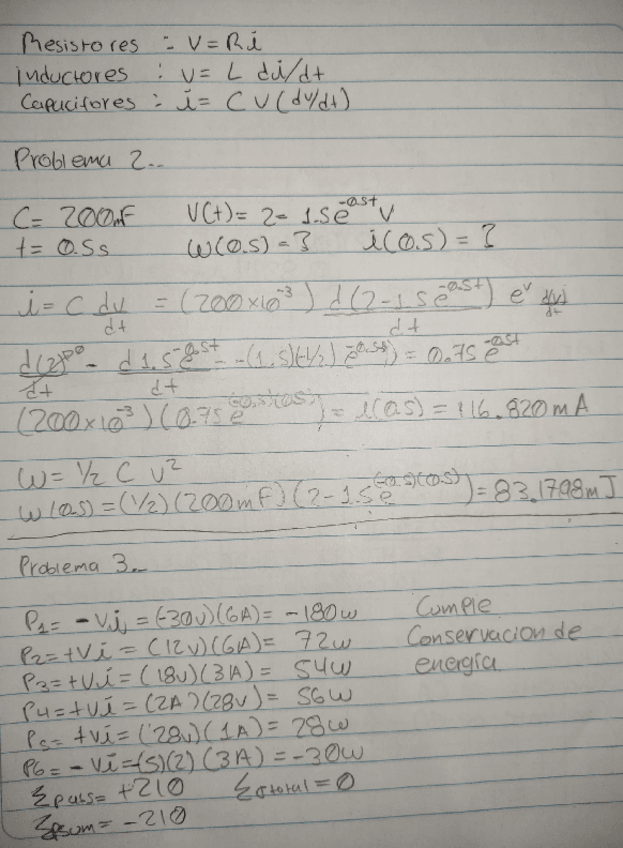 Resistores : V = Ri
Inductores : V = L di/dt
Capacitores : i = C V (dv/dt)
Problema 2..
C = 200mF V(t) = 2 - 1.5e^-0.5t V
t = 0.5s w(0.5) = ? i(0.5) = ?
i = C dv/dt = (200x10^-3) d(2-1.5e^-0.5t)/dt e^v dv/dt
d(2)/dt^0 - d1.5e^-0.5t/dt = -(1.5)(-1/2) e^-0.5t) = 0.75e^-0.5t
(200x10^-3)(0.75e^(-0.5)(0.5)) = i(0.5) = 116.820mA
W = 1/2 C V^2
W(0.5) = (1/2)(200mF)(2-1.5e^(-0.5)(0.5)) = 83.1798mJ
Problema 3..
P1 = -Vi = (-30V)(6A) = -180w Cumple
P2 = +Vi = (12V)(6A) = 72w Conservacion de
P3 = +Vi = (18V)(3A) = 54w energía
P4 = +Vi = (2A)(28V) = 56w
P5 = +Vi = (28V)(1A) = 28w
P6 = -Vi = (5)(2)(3A) = -30w
Σpass = +210 Σtotal = 0
Σpsum = -210